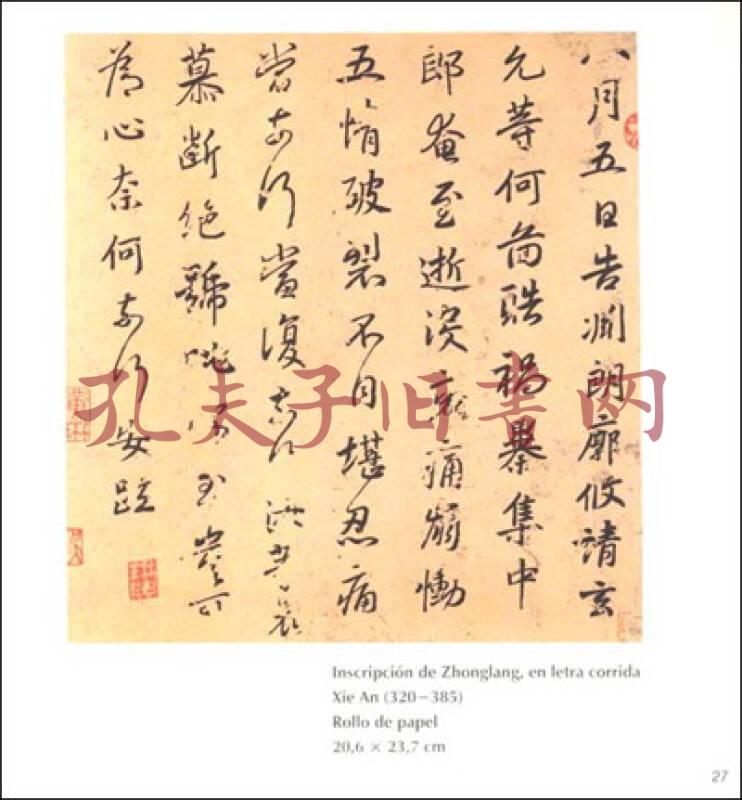 八月五日告淵朗廓攸靖玄
允等何圖酷禍暴集中
郎奄至逝没哀痛崩慟
五情破裂不自堪忍痛
當奈何當復奈何汝等哀
慕斷絶號咷深至豈可
為心奈何奈何安疏
孔夫子旧书网
Inscripción de Zhonglang, en letra corrida
Xie An (320−385)
Rollo de papel
20,6 × 23,7 cm
27